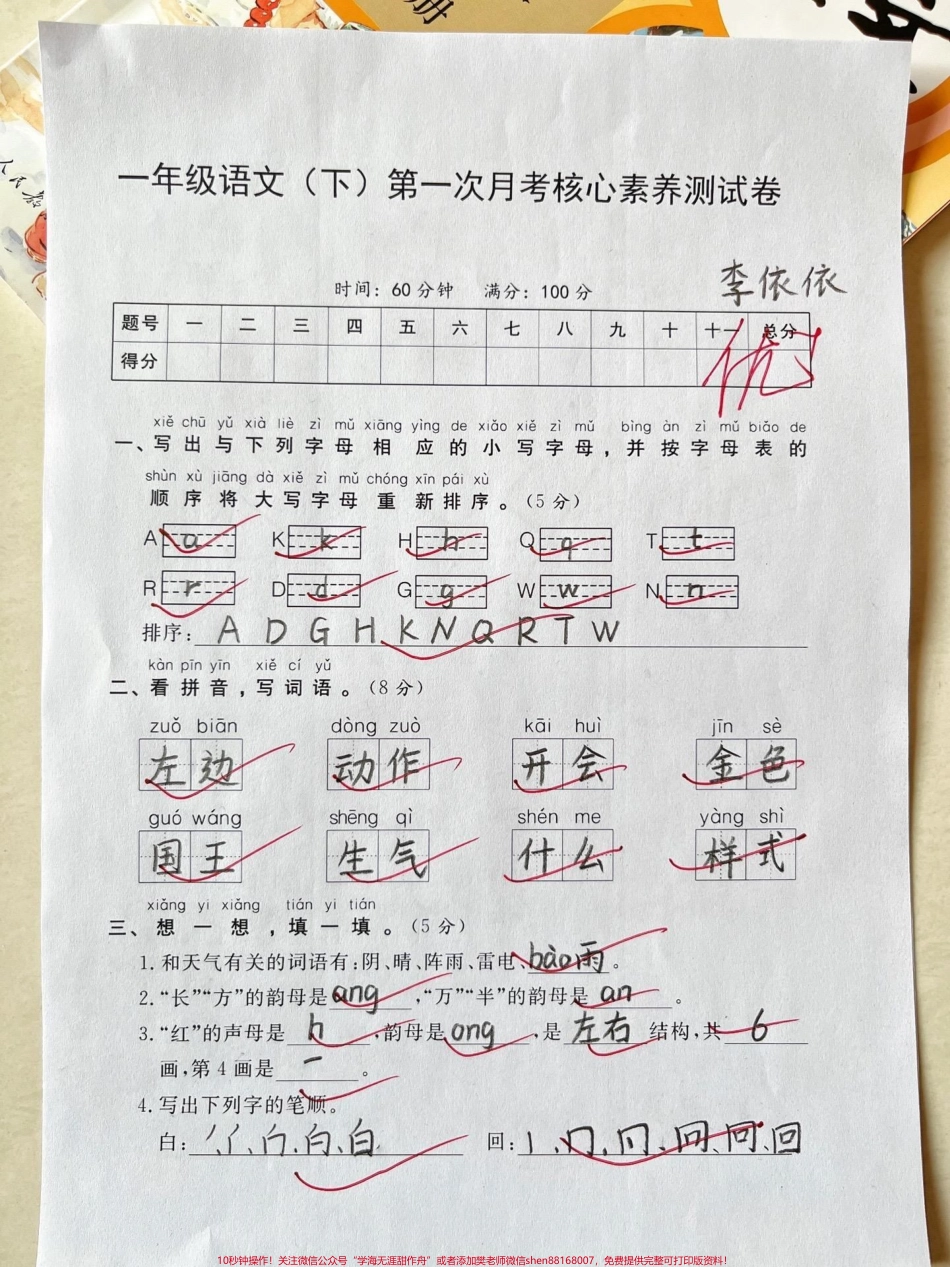 册
人民教
一年级语文（下）第一次月考核心素养测试卷
时间：60分钟 满分：100分
李依依
题号 一 二 三 四 五 六 七 八 九 十 十一 总分
得分
优
xiě chū yǔ xià liè zì mǔ xiāng yìng de xiǎo xiě zì mǔ bìng àn zì mǔ biǎo de
一、写出与下列字母相应的小写字母，并按字母表的
shùn xù jiāng dà xiě zì mǔ chóng xīn pái xù
顺序将大写字母重新排序。（5分）
A a K k H h Q q T t
R r D d G g W w N n
排序：A D G H K N Q R T W
kàn pīn yīn xiě cí yǔ
二、看拼音，写词语。（8分）
zuǒ biān dòng zuò kāi huì jīn sè
左边 动作 开会 金色
guó wáng shēng qì shén me yàng shì
国王 生气 什么 样式
xiǎng yi xiǎng tián yi tián
三、想一想，填一填。（5分）
1. 和天气有关的词语有：阴、晴、阵雨、雷电、bào雨。
2. “长”“方”的韵母是ang，“万”“半”的韵母是an。
3. “红”的声母是h，韵母是ong，是左右结构，共6
画，第4画是一。
4. 写出下列字的笔顺。
白：丿、亻、白、白 回：丨、冂、冋、回、回
10秒钟操作！关注微信公众号“学海无涯甜作舟”或者添加樊老师微信shen88168007，免费提供完整可打印版资料！